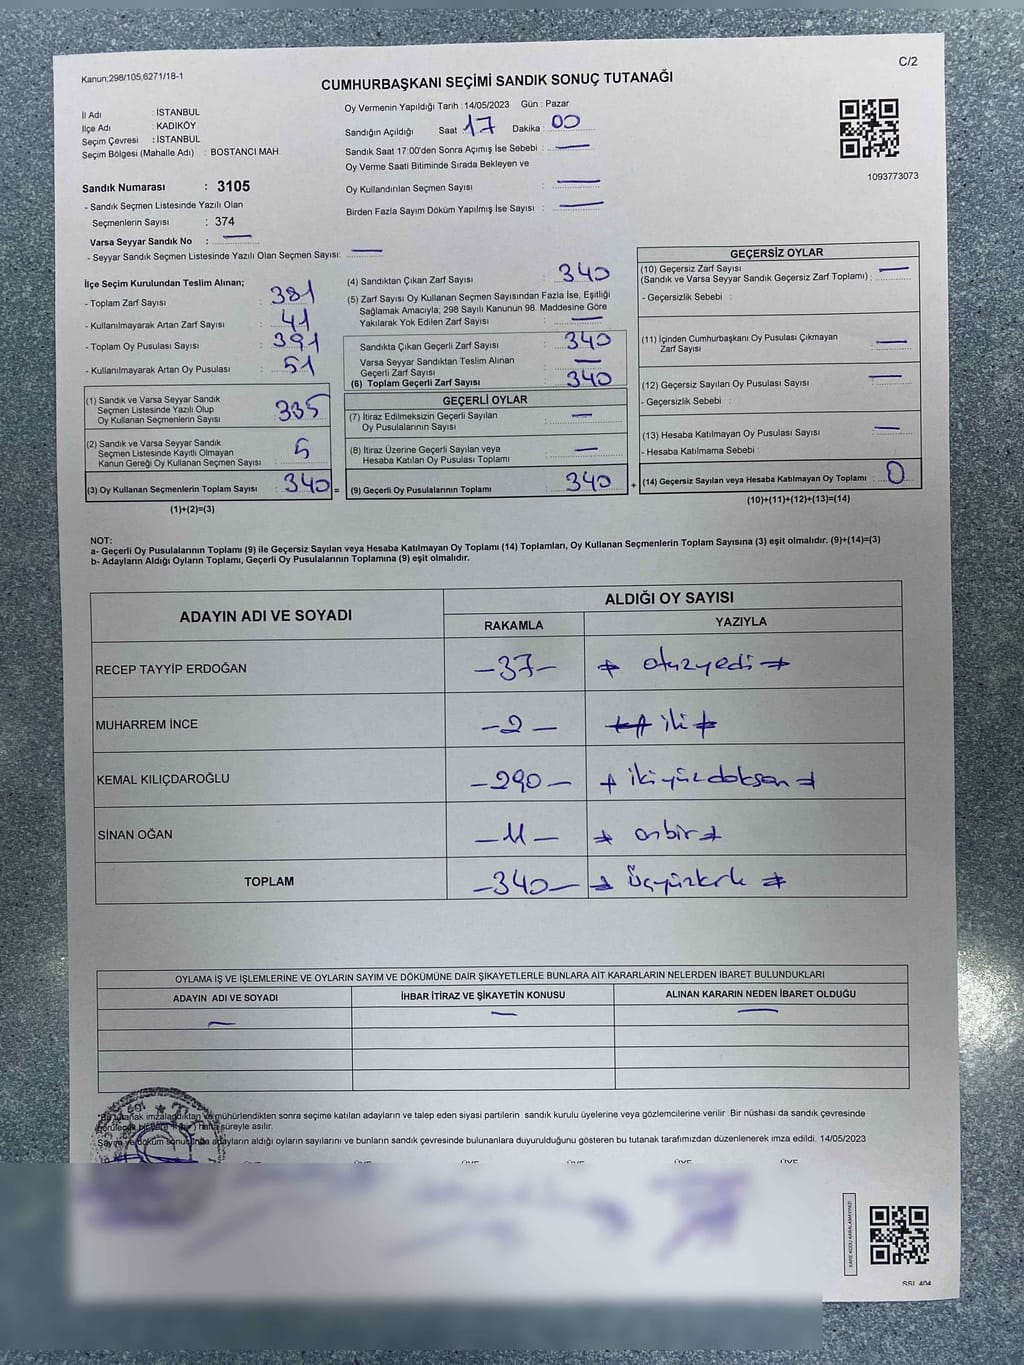 Kanun;298/105;6271/18-1
C/2
CUMHURBAŞKANI SEÇİMİ SANDIK SONUÇ TUTANAĞI
İl Adı : İSTANBUL
İlçe Adı : KADIKÖY
Seçim Çevresi : İSTANBUL
Seçim Bölgesi (Mahalle Adı) : BOSTANCI MAH.
Sandık Numarası : 3105
- Sandık Seçmen Listesinde Yazılı Olan
Seçmenlerin Sayısı : 374
Varsa Seyyar Sandık No : —
- Seyyar Sandık Seçmen Listesinde Yazılı Olan Seçmen Sayısı: —
Oy Vermenin Yapıldığı Tarih : 14/05/2023 Gün : Pazar
Sandığın Açıldığı Saat 17 Dakika : 00
Sandık Saat 17:00'den Sonra Açımış İse Sebebi : —
Oy Verme Saati Bitiminde Sırada Bekleyen ve
Oy Kullandırılan Seçmen Sayısı : —
Birden Fazla Sayım Döküm Yapılmış İse Sayısı : —
1093773073
İlçe Seçim Kurulundan Teslim Alınan;
- Toplam Zarf Sayısı : 381
- Kullanılmayarak Artan Zarf Sayısı : 41
- Toplam Oy Pusulası Sayısı : 391
- Kullanılmayarak Artan Oy Pusulası : 51
(1) Sandık ve Varsa Seyyar Sandık
Seçmen Listesinde Yazılı Olup
Oy Kullanan Seçmenlerin Sayısı : 335
(2) Sandık ve Varsa Seyyar Sandık
Seçmen Listesinde Kayıtlı Olmayan
Kanun Gereği Oy Kullanan Seçmen Sayısı : 5
(3) Oy Kullanan Seçmenlerin Toplam Sayısı : 340 =
(1)+(2)=(3)
(4) Sandıktan Çıkan Zarf Sayısı : 340
(5) Zarf Sayısı Oy Kullanan Seçmen Sayısından Fazla İse, Eşitliği
Sağlamak Amacıyla; 298 Sayılı Kanunun 98. Maddesine Göre
Yakılarak Yok Edilen Zarf Sayısı : —
Sandıkta Çıkan Geçerli Zarf Sayısı : 340
Varsa Seyyar Sandıktan Teslim Alınan
Geçerli Zarf Sayısı : —
(6) Toplam Geçerli Zarf Sayısı : 340
GEÇERLİ OYLAR
(7) İtiraz Edilmeksizin Geçerli Sayılan
Oy Pusulalarının Sayısı : —
(8) İtiraz Üzerine Geçerli Sayılan veya
Hesaba Katılan Oy Pusulası Toplamı : —
(9) Geçerli Oy Pusulalarının Toplamı : 340 +
GEÇERSİZ OYLAR
(10) Geçersiz Zarf Sayısı
(Sandık ve Varsa Seyyar Sandık Geçersiz Zarf Toplamı) : —
- Geçersizlik Sebebi :
(11) İçinden Cumhurbaşkanı Oy Pusulası Çıkmayan
Zarf Sayısı : —
(12) Geçersiz Sayılan Oy Pusulası Sayısı : —
- Geçersizlik Sebebi :
(13) Hesaba Katılmayan Oy Pusulası Sayısı : —
- Hesaba Katılmama Sebebi :
(14) Geçersiz Sayılan veya Hesaba Katılmayan Oy Toplamı : 0
(10)+(11)+(12)+(13)=(14)
NOT:
a- Geçerli Oy Pusulalarının Toplamı (9) ile Geçersiz Sayılan veya Hesaba Katılmayan Oy Toplamı (14) Toplamları, Oy Kullanan Seçmenlerin Toplam Sayısına (3) eşit olmalıdır. (9)+(14)=(3)
b- Adayların Aldığı Oyların Toplamı, Geçerli Oy Pusulalarının Toplamına (9) eşit olmalıdır.
ADAYIN ADI VE SOYADI ALDIĞI OY SAYISI
RAKAMLA YAZIYLA
RECEP TAYYİP ERDOĞAN -37- otuzyedi
MUHARREM İNCE -2- iki
KEMAL KILIÇDAROĞLU -290- ikiyüzdoksan
SİNAN OĞAN -11- onbir
TOPLAM -340- Üçyüzkırk
OYLAMA İŞ VE İŞLEMLERİNE VE OYLARIN SAYIM VE DÖKÜMÜNE DAİR ŞİKAYETLERLE BUNLARA AİT KARARLARIN NELERDEN İBARET BULUNDUKLARI
ADAYIN ADI VE SOYADI İHBAR İTİRAZ VE ŞİKAYETİN KONUSU ALINAN KARARIN NEDEN İBARET OLDUĞU
— — —
*Bu tutanak imzalandıktan ve mühürlendikten sonra seçime katılan adayların ve talep eden siyasi partilerin sandık kurulu üyelerine veya gözlemcilerine verilir. Bir nüshası da sandık çevresinde
görülecek bir yere 1 (bir) hafta süreyle asılır.
Sayım ve döküm sonucunda adayların aldığı oyların sayılarını ve bunların sandık çevresinde bulunanlara duyurulduğunu gösteren bu tutanak tarafımızdan düzenlenerek imza edildi. 14/05/2023
ÜYE ÜYE ÜYE ÜYE ÜYE ÜYE
KARE KODU KARALAMAYINIZ!
SSI 404